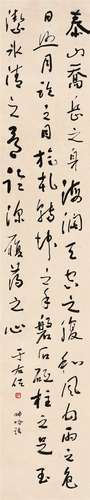 泰山喬岳之身海闊天空之腹和風甘雨之色
日照月臨之目旋乾轉坤之手磐石砥柱之足玉
潔冰清之骨臨深履薄之心
呻吟語
于右任